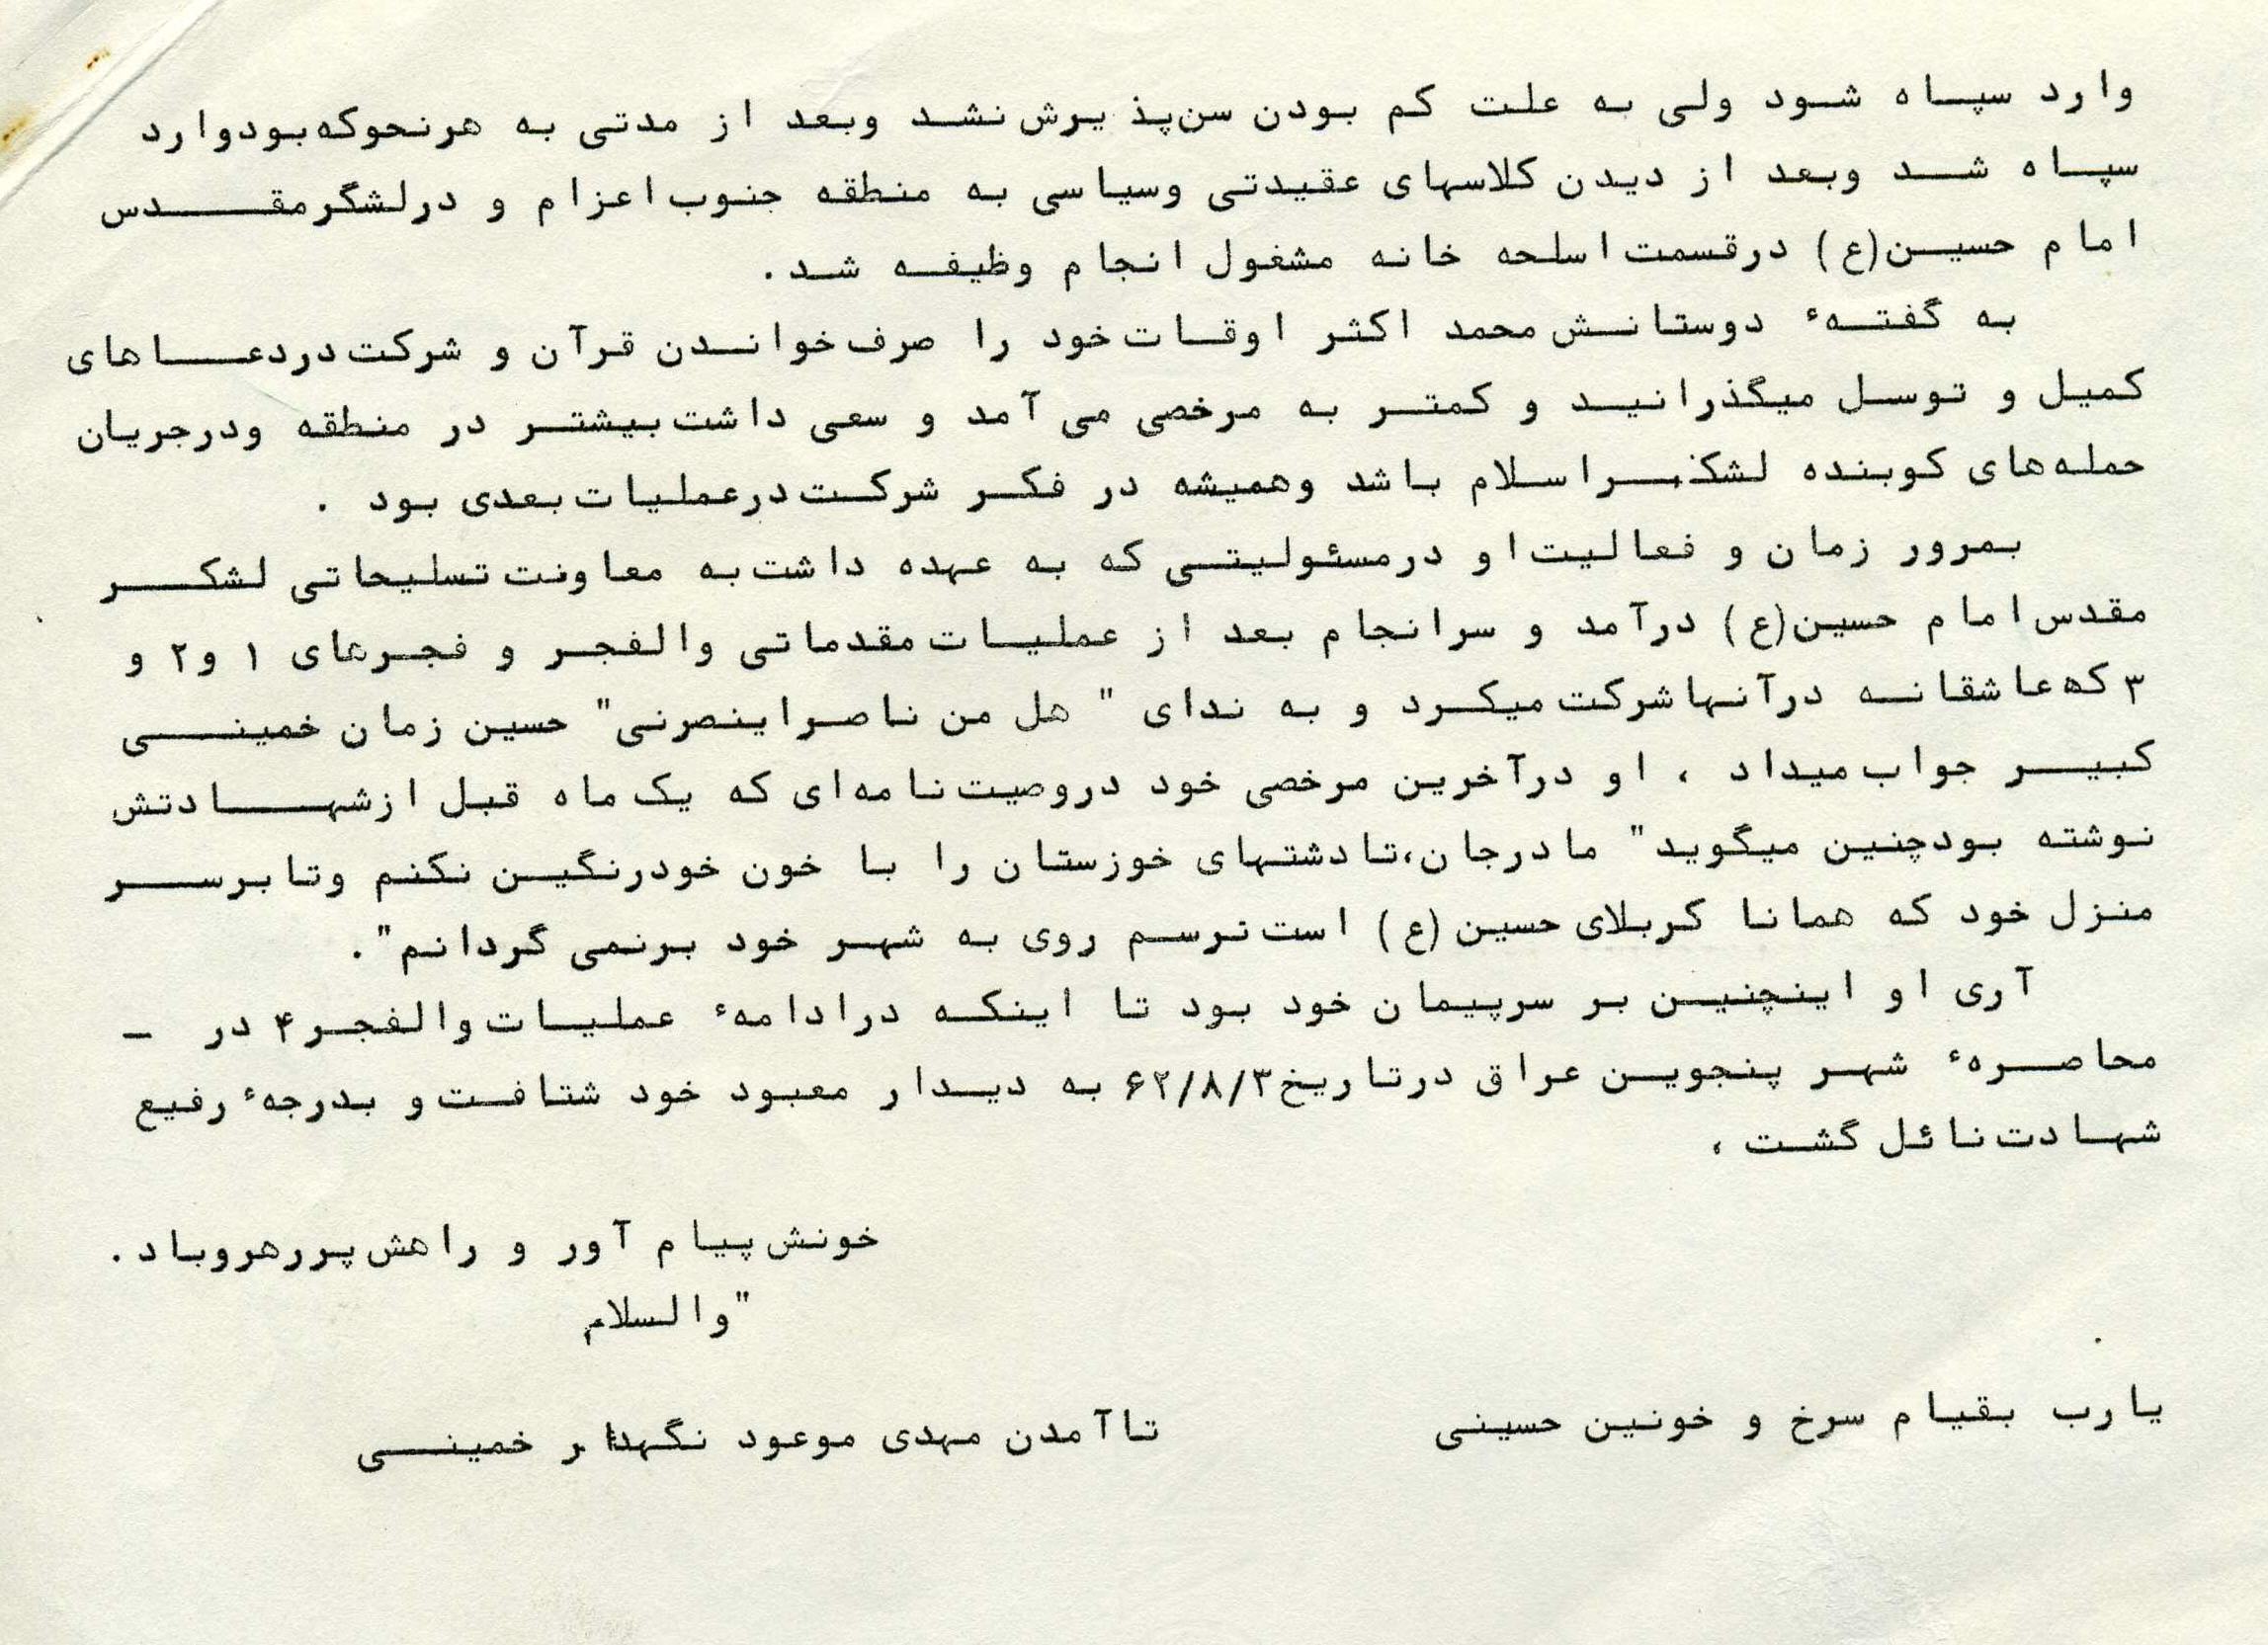 وارد سپاه شود ولی به علت کم بودن سن‌پذیرش نشد وبعد از مدتی به هرنحوکه‌بودوارد
سپاه شد وبعد از دیدن کلاسهای عقیدتی وسیاسی به منطقه جنوب اعزام و درلشگرمقدس
امام حسین(ع) درقسمت اسلحه خانه مشغول انجام وظیفه شد.
به گفتهٔ دوستانش محمد اکثر اوقات خود را صرف خواندن قرآن و شرکت دردعاهای
کمیل و توسل میگذرانید و کمتر به مرخصی می آمد و سعی داشت بیشتر در منطقه ودرجریان
حمله‌های کوبنده لشکر اسلام باشد وهمیشه در فکر شرکت درعملیات بعدی بود .
بمرور زمان و فعالیت او درمسئولیتی که به عهده داشت به معاونت تسلیحاتی لشکر
مقدس امام حسین(ع) درآمد و سرانجام بعد از عملیات مقدماتی والفجر و فجرهای ۱ و۲ و
۳ که‌عاشقانه درآنهاشرکت میکرد و به ندای " هل من ناصراینصرنی" حسین زمان خمینی
کبیر جواب میداد ، او درآخرین مرخصی خود دروصیت‌نامه‌ای که یک ماه قبل ازشهادتش
نوشته بودچنین میگوید" مادرجان،تادشتهای خوزستان را با خون خودرنگین نکنم وتابرسر
منزل خود که همانا کربلای حسین (ع) است نرسم روی به شهر خود برنمی گردانم".
آری او اینچنین بر سرپیمان خود بود تا اینکه درادامهٔ عملیات والفجر۴ در -
محاصرهٔ شهر پنجوین عراق درتاریخ۶۲/۸/۳ به دیدار معبود خود شتافت و بدرجهٔ رفیع
شهادت نائل گشت ،
خونش پیام آور و راهش پررهروباد.
"والسلام
یارب بقیام سرخ و خونین حسینی تاآمدن مهدی موعود نگهدار خمینی